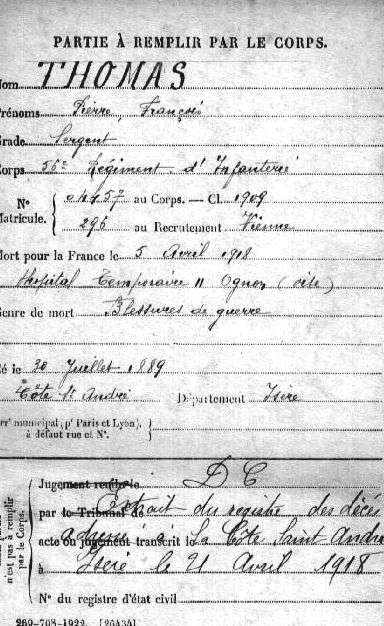 PARTIE À REMPLIR PAR LE CORPS.
Nom THOMAS
Prénoms Pierre, François
Grade Sergent
Corps 56e Régiment d'Infanterie
N° 04457 au Corps. — Cl. 1909
Matricule. 296 au Recrutement Vienne
Mort pour la France le 5 Avril 1918
Hôpital Temporaire Ognon (oise)
Genre de mort Blessures de guerre
Né le 30 Juillet 1889
Côte St André Département Isère
Arr' municipal (p' Paris et Lyon),
à défaut rue et N°.
D C
Jugement rendu le
par le Tribunal de Extrait du registre des décès
acte ou jugement transcrit le adressé à La Côte Saint André
à Isère le 21 Avril 1918
N° du registre d'état civil
n'est pas à remplir
par le Corps.
269-708-1922. [26434]